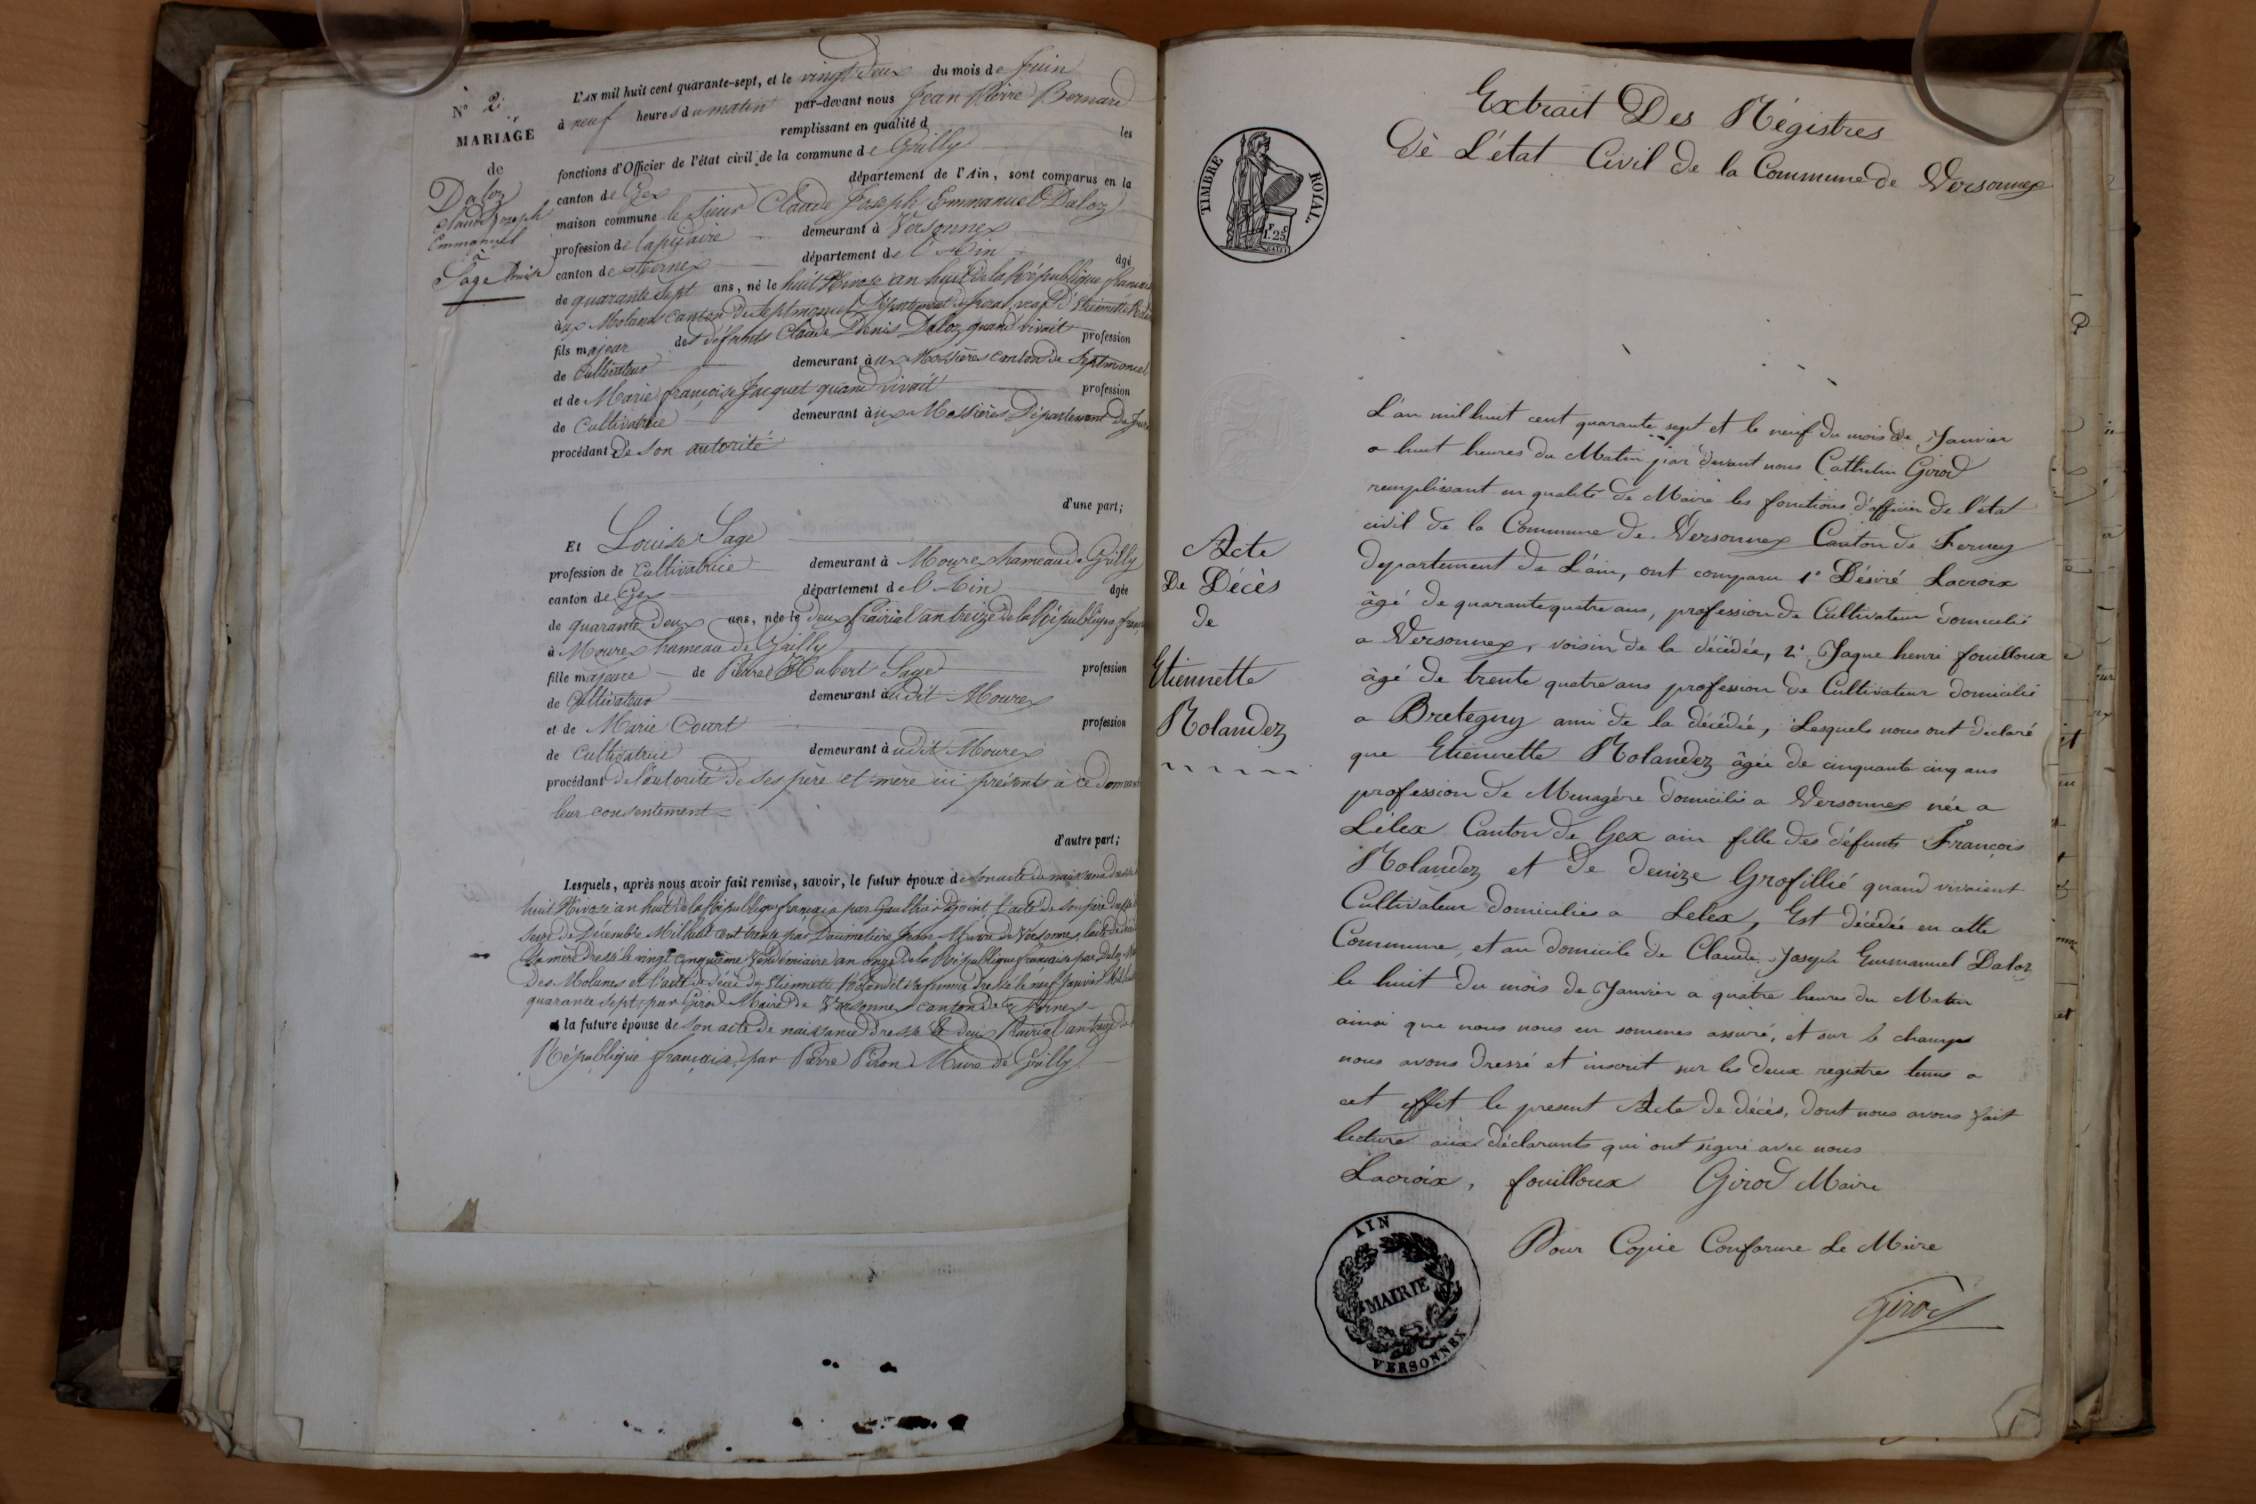 N° 2.
MARIAGE
de
Daloz
Claude Joseph
Emmanuel
à
Sage Louise
L'AN mil huit cent quarante-sept, et le vingt deux du mois de juin
à neuf heures du matin par-devant nous Jean Pierre Bernard
remplissant en qualité d les
fonctions d'Officier de l'état civil de la commune de Grilly
canton de Gex département de l'Ain, sont comparus en la
maison commune le Sieur Claude Joseph Emmanuel Daloz
profession de lapidaire demeurant à Versonnex
canton de Ferney département de l'Ain âgé
de quarante sept ans, né le huit Nivose an huit de la République française
aux Molunes canton de Septmoncel Département du Jura, veuf d'Etiennette
fils majeur des défunts Claude Denis Daloz quand vivait profession
de Cultivateur demeurant aux Mossières canton de Septmoncel
et de Marie françoise Jacquet quand vivait profession
de Cultivatrice demeurant aux Mossières Département du Jura
procédant de son autorité
d'une part;
Et Louise Sage
profession de Cultivatrice demeurant à Mourex hameau de Grilly
canton de Gex département de l'Ain âgée
de quarante deux ans, née le deux Prairial an treize de la République
à Mourex hameau de Grilly
fille majeure de Pierre Hubert Sage profession
de Cultivateur demeurant audit Mourex
et de Marie Court profession
de Cultivatrice demeurant audit Mourex
procédant de l'autorité de ses père et mère ici présents à ce donnant
leur consentement
d'autre part;
Lesquels, après nous avoir fait remise, savoir, le futur époux de son acte de naissance dressé
huit Nivose an huit de la République française par Gauthier adjoint, l'acte de son père dressé
seize de Décembre Mil huit cent trente par Maire de Versonnex, l'acte de décès
sa mère dressé le vingt cinquième Vendémiaire an onze de la République française par Daloz
des Molunes et l'acte de décès de Etiennette sa femme dressé le neuf Janvier
quarante sept par Girod Maire de Versonnex canton de Ferney
la future épouse de son acte de naissance dressé le deux Prairial an treize de la
République française, par Pierre Piron Maire de Grilly
TIMBRE ROYAL.
1.25
Extrait Des Régistres
Dè L'état Civil de la Commune de Versonnex
Acte
De Décès
de
Etiennette
Rolandez
L'an mil huit cent quarante sept et le neuf du mois de Janvier
a huit heures du Matin par devant nous Cathelin Girod
remplissant en qualité de Maire les fonctions d'officier de l'état
civil de la Commune de Versonnex Canton de Ferney
departement de L'ain, ont comparu 1° Désiré Lacroix
âgé de quarante quatre ans, profession de Cultivateur domicilié
a Versonnex, voisin de la décédée, 2° Jaque henri fouilloux
âgé de trente quatre ans profession de Cultivateur domicilié
a Bretegny ami de la décédée, Lesquels nous ont declaré
que Etiennette Rolandez âgée de cinquante cinq ans
profession de Menagére domiciliée a Versonnex née a
Lélex Canton de Gex ain fille des défunts François
Rolandez et de denize Grofillié quand vivaient
Cultivateur domiciliés a Lelex, Est décédée en cette
Commune, et au domicile de Claude Joseph Emmanuel Daloz
le huit du mois de Janvier a quatre heures du Matin
ainsi que nous nous en sommes assuré, et sur le champs
nous avons dressé et inscrit sur les deux registres tenus a
cet effet le present Acte de décès, dont nous avons fait
lecture aux déclarants qui ont signé avec nous
Lacroix, fouilloux Girod Maire
Pour Copie Conforme Le Maire
Girod
AIN
MAIRIE
VERSONNEX